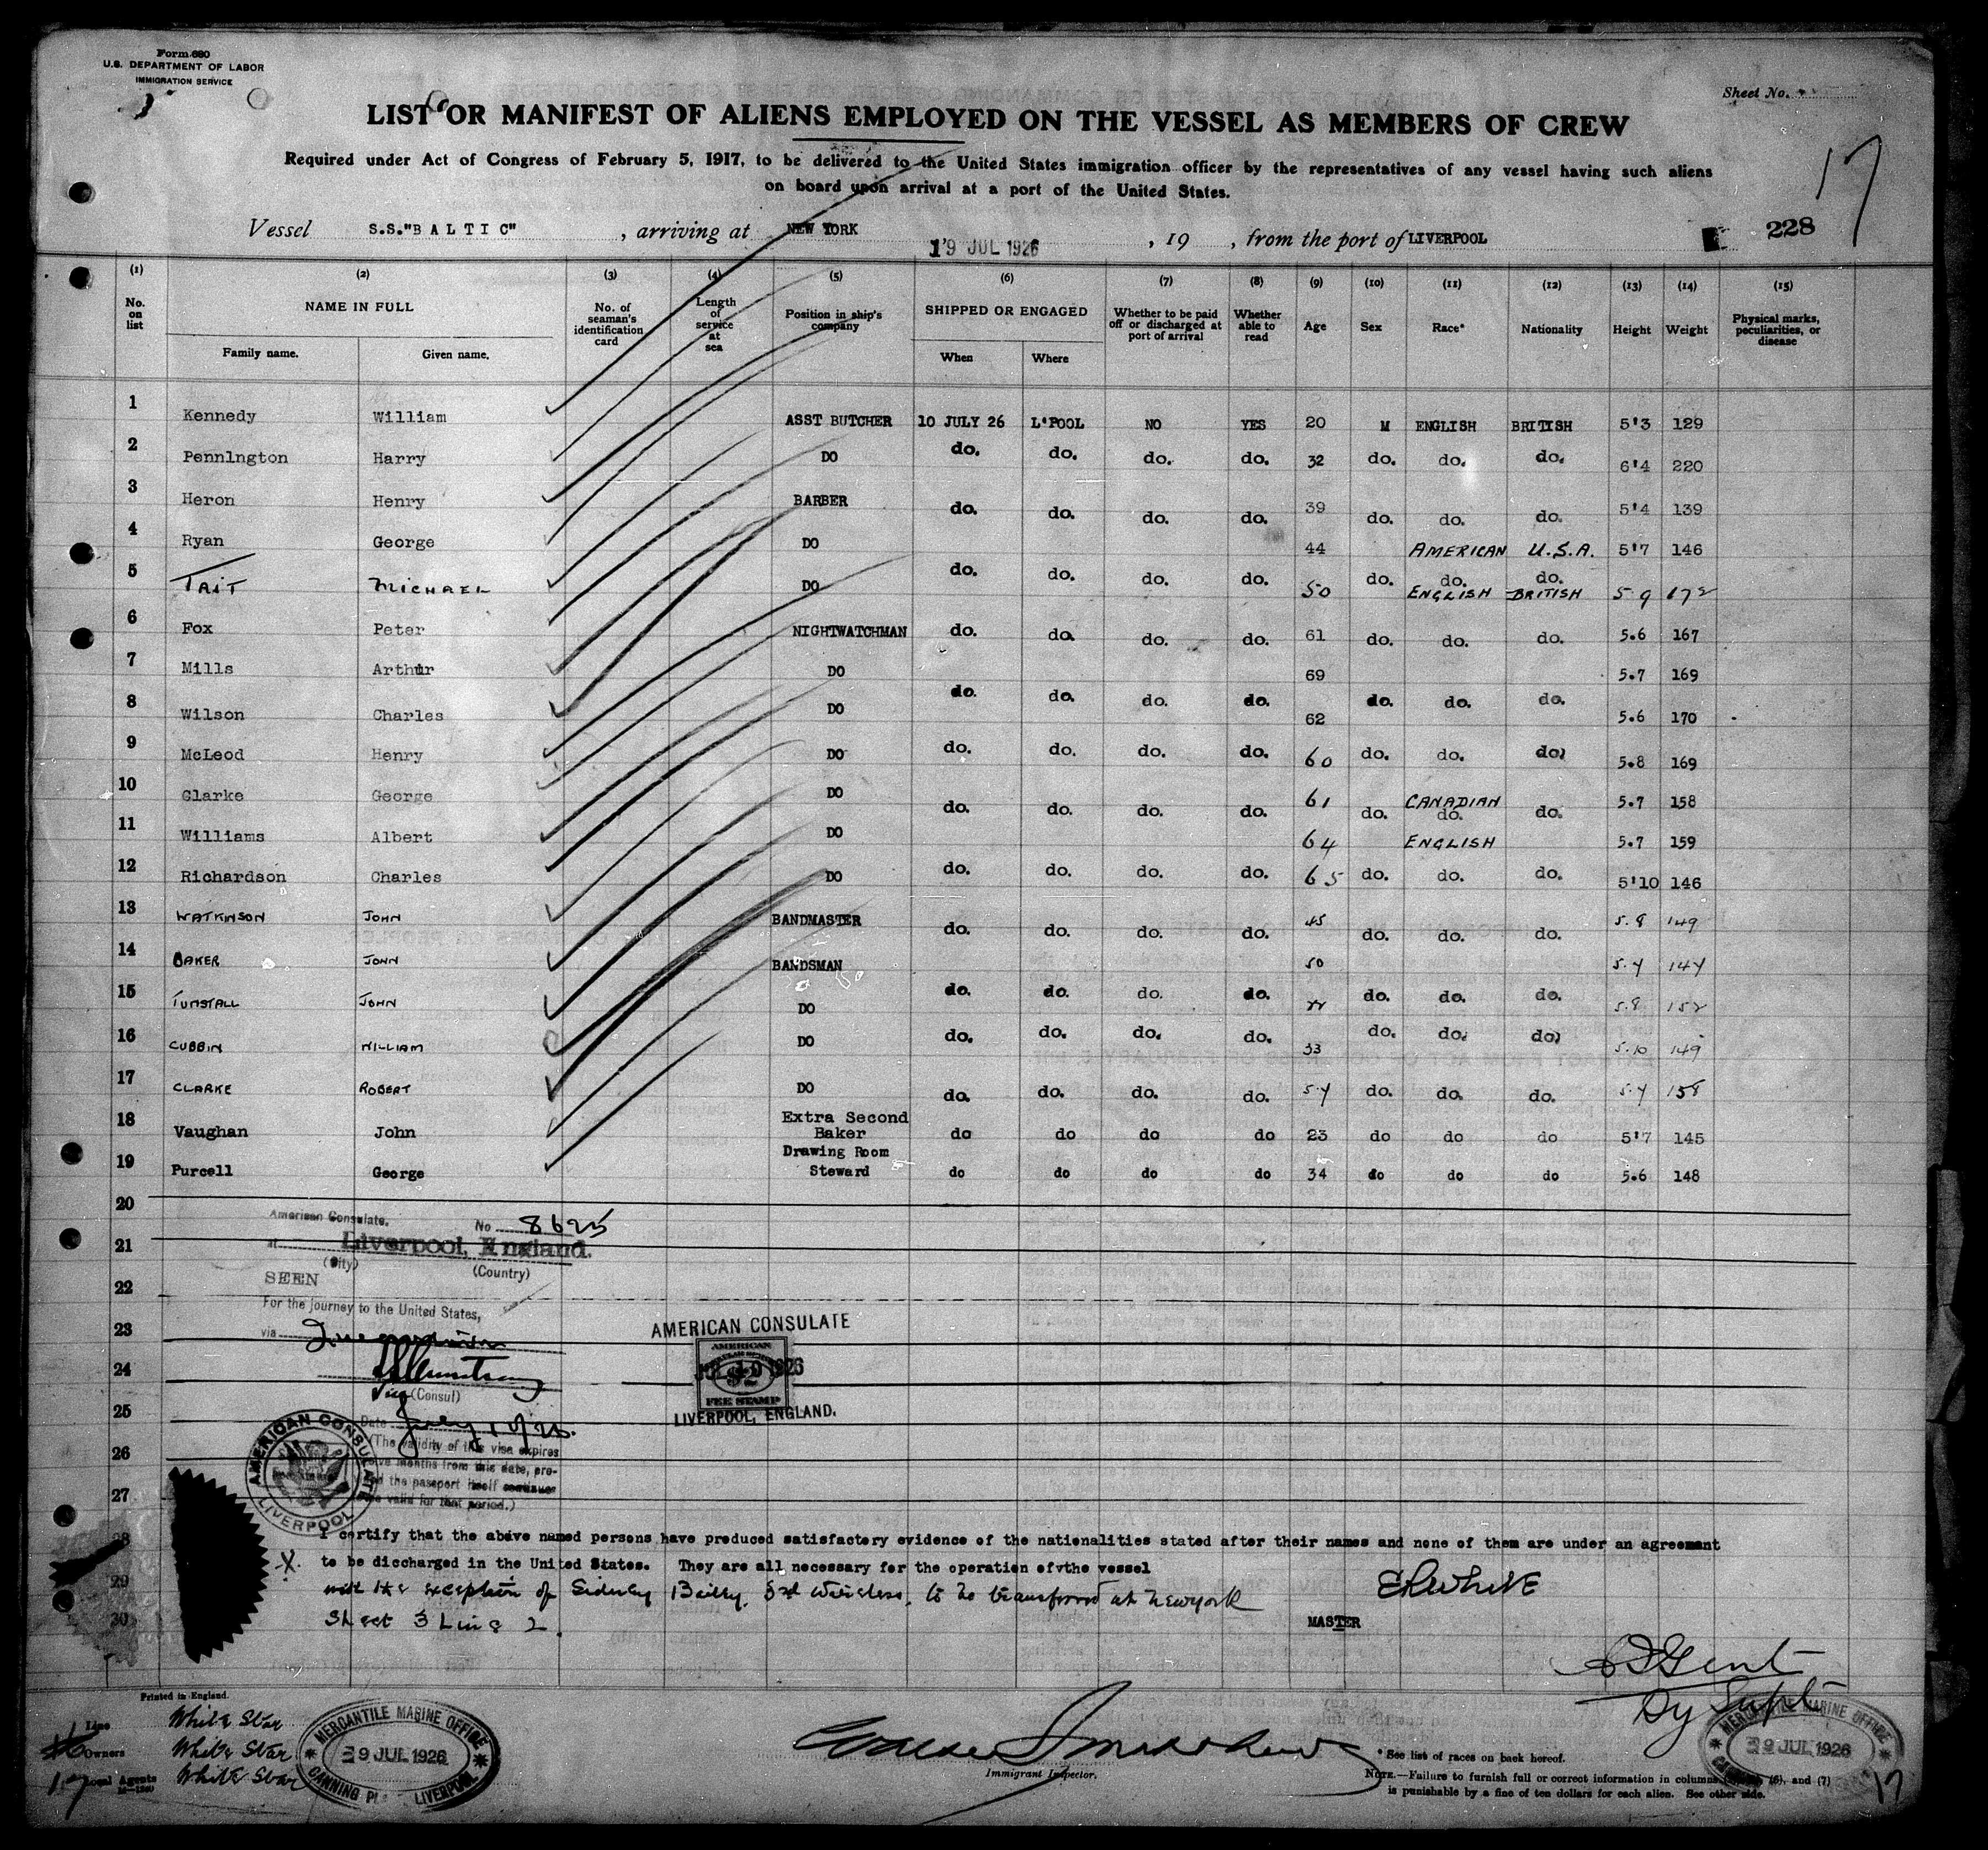 Form 680
U.S. DEPARTMENT OF LABOR
IMMIGRATION SERVICE
Sheet No.
LIST OR MANIFEST OF ALIENS EMPLOYED ON THE VESSEL AS MEMBERS OF CREW
Required under Act of Congress of February 5, 1917, to be delivered to the United States immigration officer by the representatives of any vessel having such aliens
on board upon arrival at a port of the United States.
17
Vessel S.S."BALTIC" , arriving at NEW YORK 19 JUL 1926 , 19 , from the port of LIVERPOOL 228
(1) (2) (3) (4) (5) (6) (7) (8) (9) (10) (11) (12) (13) (14) (15)
No. on list NAME IN FULL Family name. Given name. No. of seaman's identification card Length of service at sea Position in ship's company SHIPPED OR ENGAGED When Where Whether to be paid off or discharged at port of arrival Whether able to read Age Sex Race* Nationality Height Weight Physical marks, peculiarities, or disease
1 Kennedy William ASST BUTCHER 10 JULY 26 L'POOL NO YES 20 M ENGLISH BRITISH 5'3 129
2 Pennington Harry DO do. do. do. do. 32 do. do. do. 6'4 220
3 Heron Henry BARBER do. do. do. do. 39 do. do. do. 5'4 139
4 Ryan George DO 44 AMERICAN U.S.A. 5'7 146
5 TAIT MICHAEL DO do. do. do. do. 50 do. do. ENGLISH do. BRITISH 5.9 172
6 Fox Peter NIGHTWATCHMAN do. do. do. do. 61 do. do. do. 5.6 167
7 Mills Arthur DO 69 5.7 169
8 Wilson Charles DO do. do. do. do. 62 do. do. do. 5.6 170
9 McLeod Henry DO do. do. do. do. 60 do. do. do. 5.8 169
10 Clarke George DO do. do. do. do. 61 do. CANADIAN do. do. 5.7 158
11 Williams Albert DO 64 ENGLISH 5.7 159
12 Richardson Charles DO do. do. do. do. 65 do. do. do. 5'10 146
13 WATKINSON JOHN BANDMASTER do. do. do. do. 45 do. do. do. 5.8 149
14 BAKER JOHN BANDSMAN 50 5.4 144
15 TUNSTALL JOHN DO do. do. do. do. do. do. do. 5.8 152
16 CUBBIN WILLIAM DO do. do. do. do. 33 do. do. do. 5.10 149
17 CLARKE ROBERT DO do. do. do. do. 54 do. do. do. 5.4 158
18 Vaughan John Extra Second Baker do do do do 23 do do do 5'7 145
19 Purcell George Drawing Room Steward do do do do 34 do do do 5.6 148
20
American Consulate. No 8625
21
at Liverpool, England.
(City) (Country)
22
SEEN
For the journey to the United States,
23
via
AMERICAN CONSULATE
24
AMERICAN
JUL 10 1926
$2
FEE STAMP
LIVERPOOL, ENGLAND.
Vice (Consul)
25
Date July 10/26.
26
(The validity of this visa expires
twelve months from this date, pro-
vided the passport itself continues
to be valid for that period.)
AMERICAN CONSULATE LIVERPOOL
27
28
I certify that the above named persons have produced satisfactory evidence of the nationalities stated after their names and none of them are under an agreement
X. to be diccharged in the United States. They are all necessary for the operation ofvthe vessel
29
with the exception of Sidney Bailey. 3rd Wireless, to be transferred at New York
30
Sheet 3 Line 2.
MASTER
Dy Supt
Printed in England.
Line White Star
Owners White Star
Local Agents White Star
17
MERCANTILE MARINE OFFICE 9 JUL 1926 CANNING PL LIVERPOOL
Immigrant Inspector.
MERCANTILE MARINE OFFICE 9 JUL 1926
* See list of races on back hereof.
NOTE.—Failure to furnish full or correct information in columns (6), and (7)
is punishable by a fine of ten dollars for each alien. See other side.
17